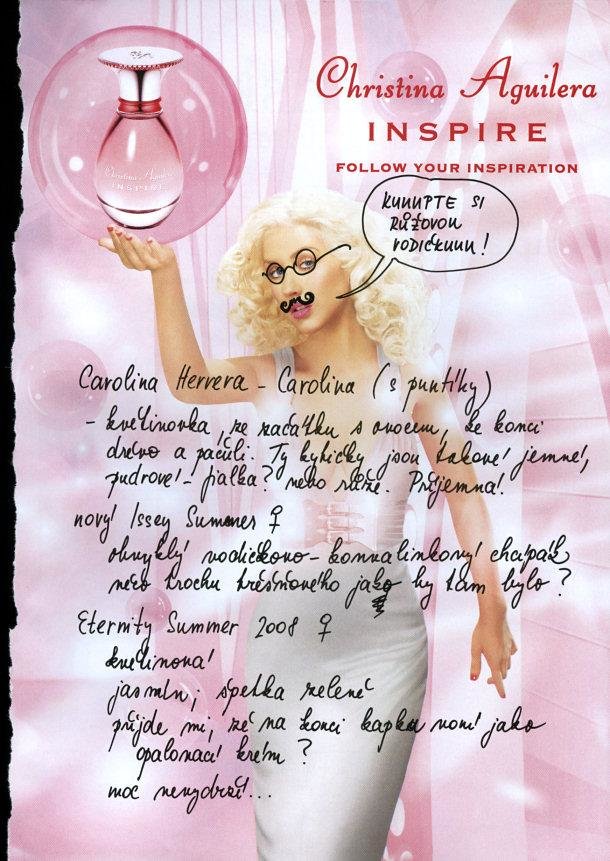 Christina Aguilera
INSPIRE
FOLLOW YOUR INSPIRATION
Christina Aguilera
INSPIRE
KUUUPTE SI
RŮŽOVOU
VODIČKUUU!
Carolina Herrera – Carolina (s puntíky)
– květinovka, ze začátku s ovocem, ke konci
dřevo a pačuli. Ty kytičky jsou takové jemné,
pudrové – fialka? nebo růže. Příjemná!
nový Issey Summer ♀
obvyklý vodičkovo – konvalinkový chapák
něco trochu třešňového jako by tam bylo?
Eternity Summer 2008 ♀
květinová
jasmín, špetka zeleně
přijde mi, že na konci kapku voní jako
opalovací krém?
moc nevydrží...